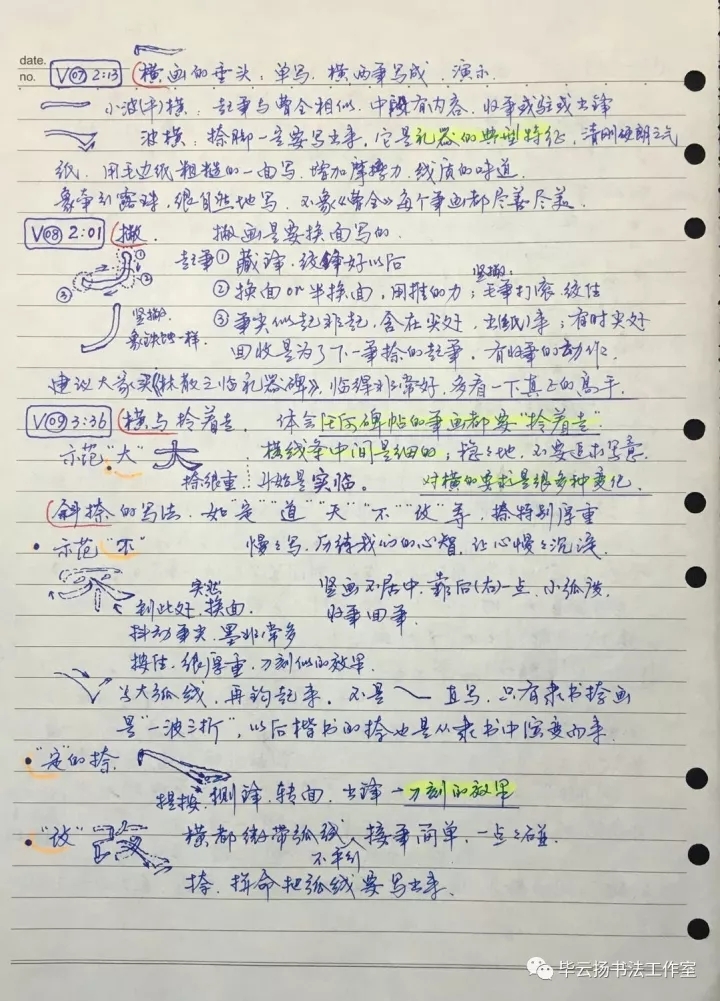 date.
no.
V07 2:13 横画的垂头：单写.横两笔写成.演示
小波(平)横：起笔与曹全相似.中段有内容.收笔或驻或出锋
波横：捺脚一定要写出来，它是礼器的典型特征，清刚硬朗之气
纸.用毛边纸粗糙的一面写.增加摩擦力.线质的味道.
象牵引露珠，很自然地写.不象《曹全》每个笔画都尽善尽美.
V08 2:01 撇. 撇画是要换面写的.
起笔① 藏锋.绞锋好以后
② 换面or半换面，用推的力；竖撇：毛笔打滚绞住
③ 笔尖似起非起，含在尖处，出(纸)来；有时尖处
竖撇 象铁线一样.
回收是为了下一笔捺的起笔.有收笔的动作.
建议大家买《林散之临礼器碑》，临得非常好，多看一下真正的高手.
V09 3:36 横与拎着走. 体会任何碑帖的笔画都要“拎着走”
示范“大” 横线条中间是细的，稳々地.不要追求写意.
捺很重.开始是实临. 对横的要求是很多种变化.
斜捺的写法.如“定”“道”“天”“不”“故”等，捺特别厚重
• 示范“不” 慢々写.历练我们的心智，让心慢々沉淀.
到此处.突然换面. 竖画不居中，靠后(右)一点，小弧度.
抖动笔尖.墨非常多 收笔回笔.
按住.很厚重.刀刻似的效果.
与大弧线，再钩起来.不是 直写.只有隶书捺画
是“一波三折”，以后楷书的捺也是从隶书中演变而来.
• “定”的捺.
提按.侧锋.转面.出锋→刀刻的效果
• “故” 横都微带弧线.不平行 接笔简单.一点々碰.
捺.拼命把弧线要写出来.
毕云扬书法工作室